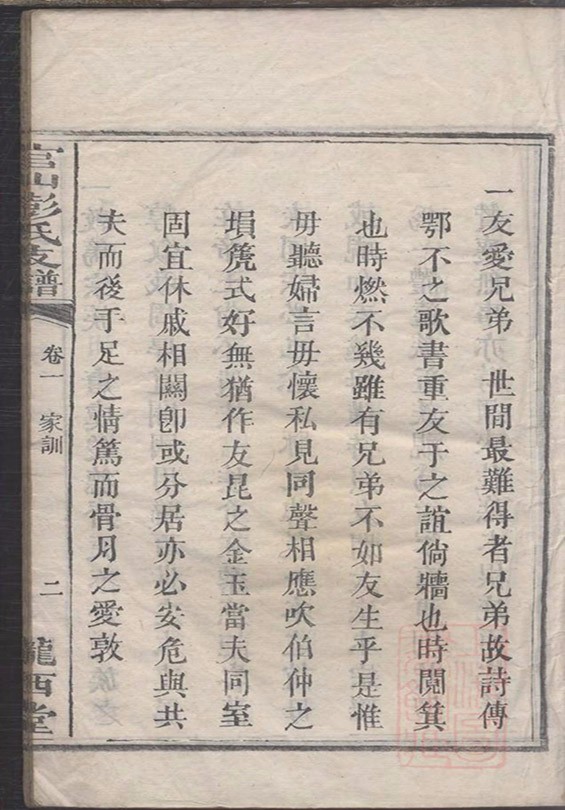 一友愛兄弟　世間最難得者兄弟故詩傳
鄂不之歌書重友于之誼倘牆也時鬩箕
也時燃不幾雖有兄弟不如友生乎是惟
毋聽婦言毋懷私見同聲相應吹伯仲之
塤篪式好無猶作友昆之金玉當夫同室
固宜休戚相關卽或分居亦必安危與共
夫而後手足之情篤而骨月之愛敦
官山彭氏支譜
卷一　家訓
二
隴西堂